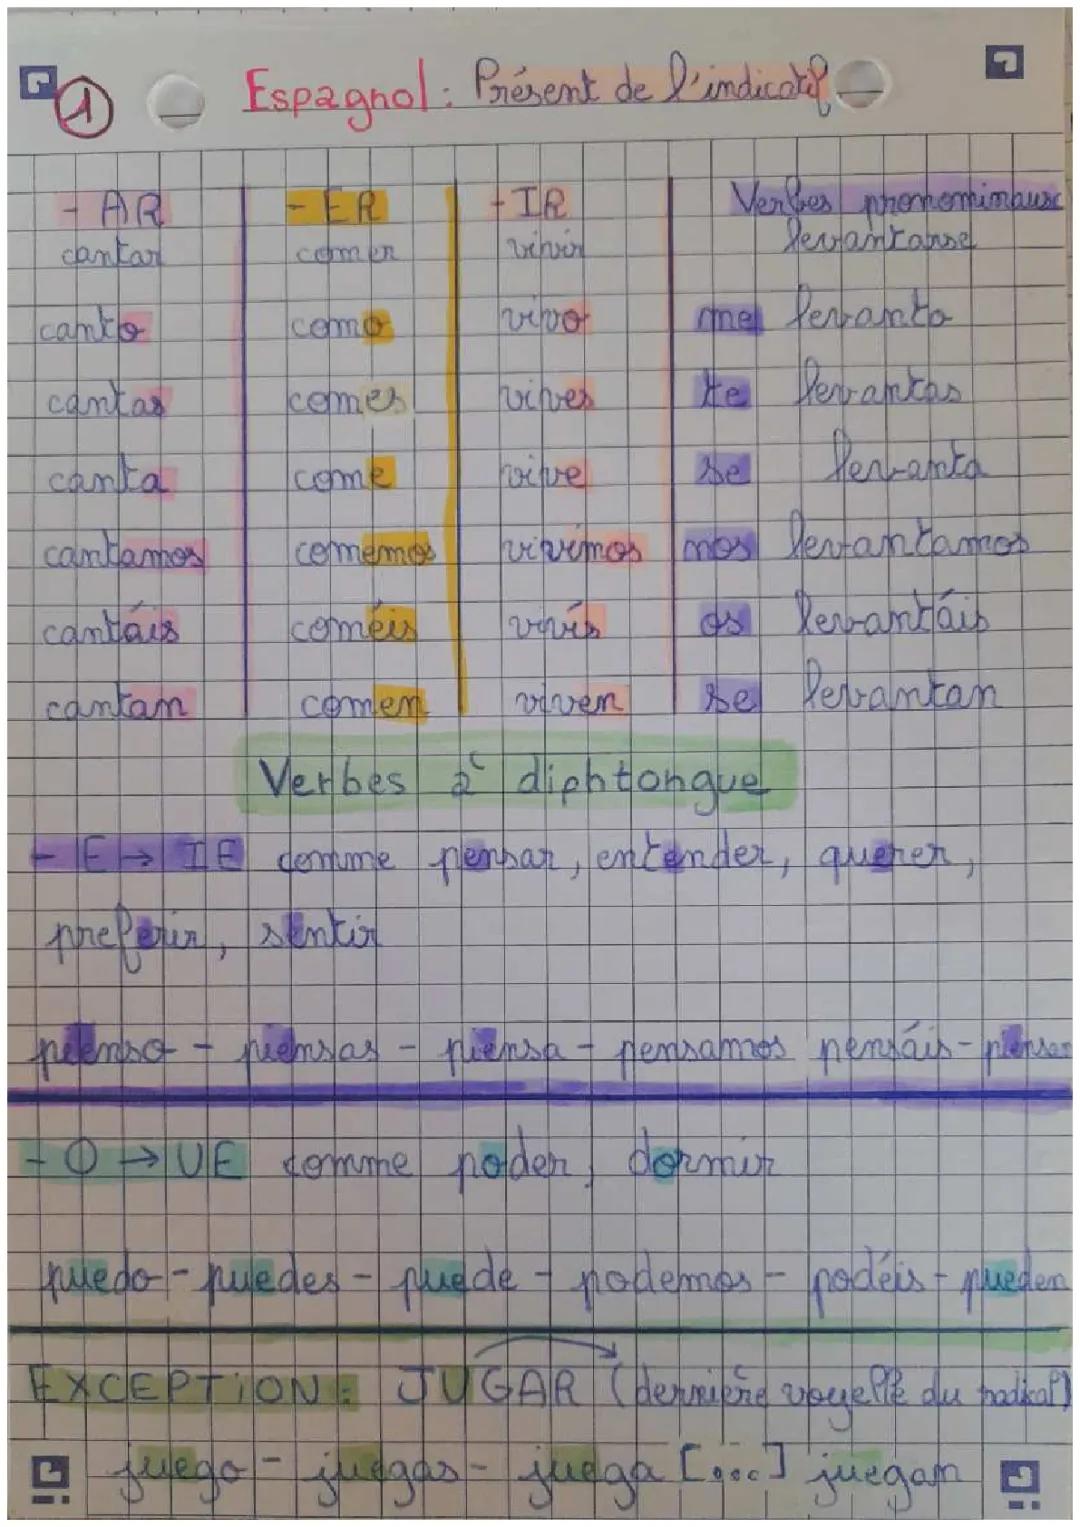 1
Espagnol : Présent de l'indicatif
- AR - ER - IR Verbes pronominaux
cantar comer vivir levantarse
canto como vivo me levanto
cantas comes vives te levantas
canta come vive se levanta
cantamos comemos vivimos nos levantamos
cantáis coméis vivís os levantáis
cantan comen viven se levantan
Verbes à diphtongue
- E → IE comme pensar, entender, querer,
preferir, sentir
pienso - piensas - piensa - pensamos pensáis - piensan
- O → UE comme poder, dormir
puedo - puedes - puede - podemos - podéis - pueden
EXCEPTION : JUGAR (dernière voyelle du radical)
juego - juegas - juega [...] juegan